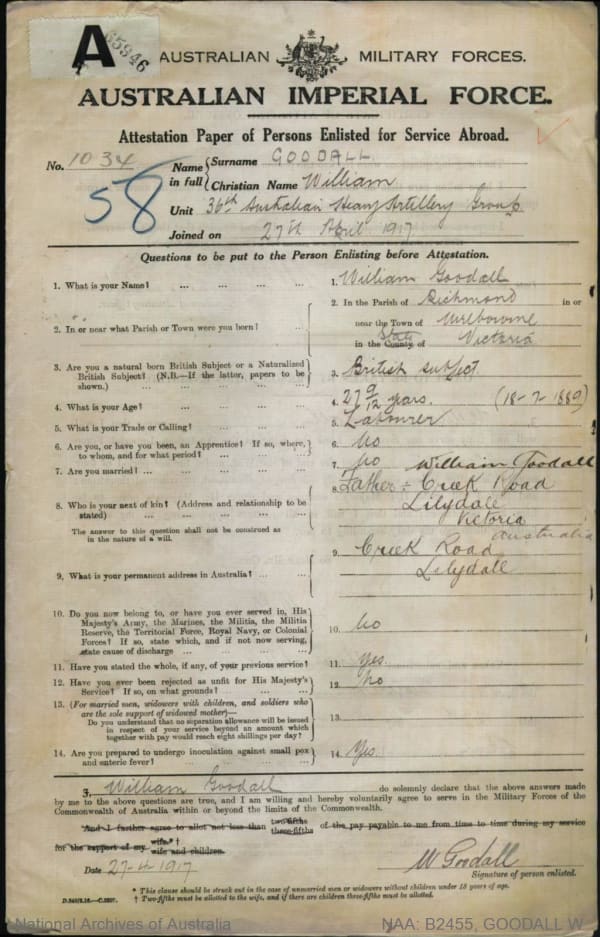 A 65946
AUSTRALIAN MILITARY FORCES.
AUSTRALIAN IMPERIAL FORCE.
Attestation Paper of Persons Enlisted for Service Abroad.
No. 1034
58
Name in full
Surname GOODALL
Christian Name William
Unit 36th Australian Heavy Artillery Group
Joined on 27th April 1917
Questions to be put to the Person Enlisting before Attestation.
1. What is your Name? ... ... ...
1. William Goodall
2. In or near what Parish or Town were you born? ...
2. In the Parish of Richmond in or
near the Town of Melbourne
in the County State of Victoria
3. Are you a natural born British Subject or a Naturalized
British Subject? (N.B.—If the latter, papers to be
shown.) ... ... ... ...
3. British subject
4. What is your Age? ... ... ...
4. 27 9/12 years. (18-7-1889)
5. What is your Trade or Calling? ... ... ...
5. Labourer
6. Are you, or have you been, an Apprentice? If so, where,
to whom, and for what period? ... ... ...
6. No
7. Are you married? ... ... ... ...
7. No
8. Who is your next of kin? (Address and relationship to be
stated) ... ... ... ...
The answer to this question shall not be construed as
in the nature of a will.
William Goodall
8. Father : Creek Road
Lilydale
Victoria
Australia
9. What is your permanent address in Australia? ... ...
9. Creek Road
Lilydale
10. Do you now belong to, or have you ever served in, His
Majesty's Army, the Marines, the Militia, the Militia
Reserve, the Territorial Force, Royal Navy, or Colonial
Forces? If so, state which, and if not now serving,
state cause of discharge ... ... ...
10. No
11. Have you stated the whole, if any, of your previous service?
11. Yes
12. Have you ever been rejected as unfit for His Majesty's
Service? If so, on what grounds? ... ...
12. No
13. (For married men, widowers with children, and soldiers who
are the sole support of widowed mother)—
Do you understand that no separation allowance will be issued
in respect of your service beyond an amount which
together with pay would reach eight shillings per day?
13.
14. Are you prepared to undergo inoculation against small pox
and enteric fever? ... ... ...
14. Yes
I, William Goodall do solemnly declare that the above answers made
by me to the above questions are true, and I am willing and hereby voluntarily agree to serve in the Military Forces of the
Commonwealth of Australia within or beyond the limits of the Commonwealth.
And I further agree to allot not less than two-fifths three-fifths of the pay payable to me from time to time during my service
for the support of my wife.*† wife and children.
Date 27-4-1917
W Goodall
Signature of person enlisted.
* This clause should be struck out in the case of unmarried men or widowers without children under 18 years of age.
† Two-fifths must be allotted to the wife, and if there are children three-fifths must be allotted.
National Archives of Australia
NAA: B2455, GOODALL W